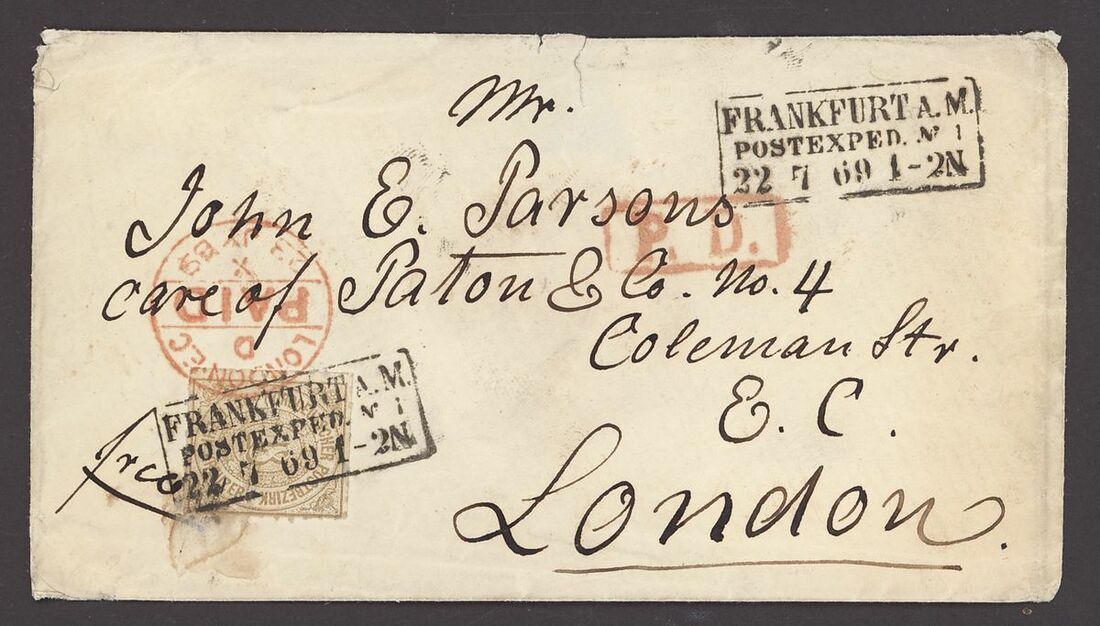 Mr.
FRANKFURT A.M.
POSTEXPED. Nº 1
22 7 69 1-2N
John E. Parsons
P. D.
care of Paton & Co. No. 4
LONDON.E.C
PAID
Coleman Str.
E. C.
FRANKFURT A.M.
POSTEXPED. Nº 1
22 7 69 1-2N
free
London.